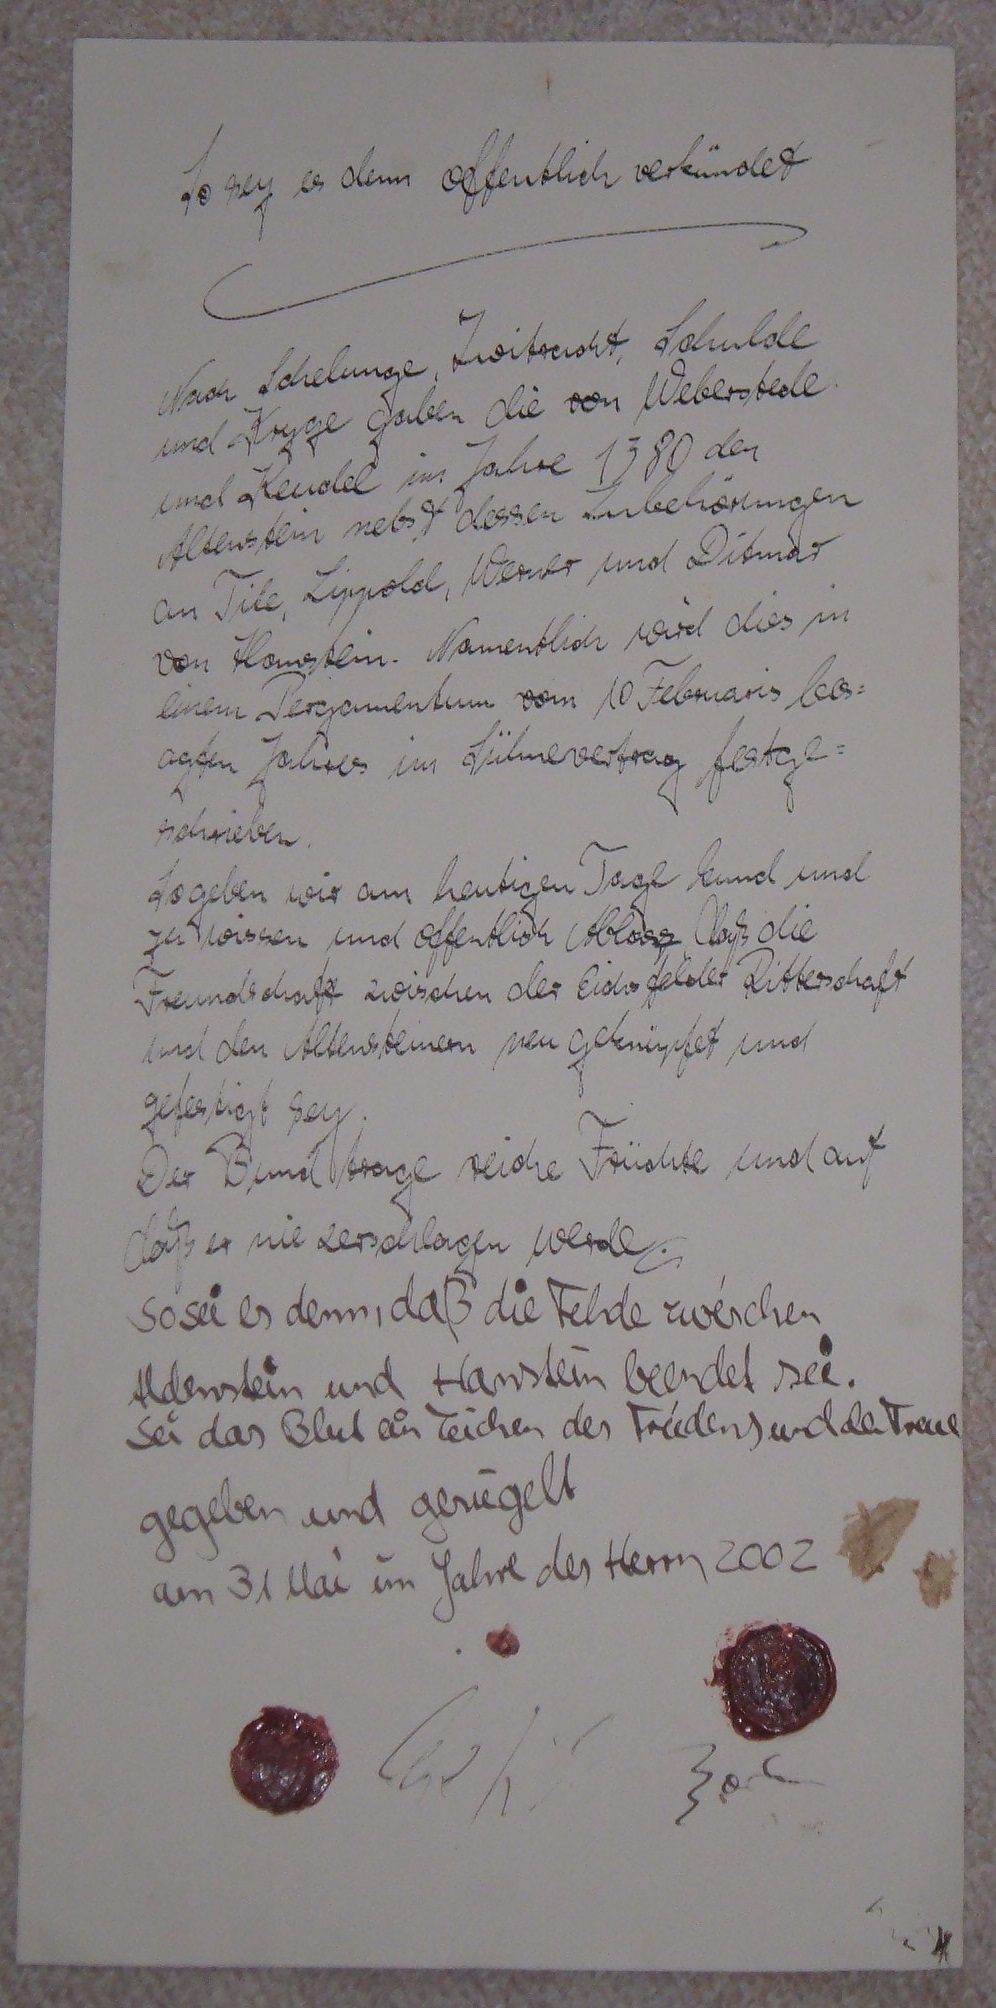 So sey es denn offentlich verkündet
Nach Schelunge, Zwitracht, Schulde
und Kryge gaben die von Weberstede
und Keudel im Jahre 1380 den
Altenstein nebst dessen Zubehörungen
an Tile, Lippold, Werner und Ditmar
von Hanstein. Namentlich wird dies in
einem Pergamentum vom 10 Februaris bes=
agten Jahres im Sühnevertrag festge=
schrieben.
So geben wir am heutigen Tage kund und
zu wissen und offentlich daß die
Freundschaft zwischen der Eichsfelder Ritterschaft
und den Altensteinern neu geknüpfet und
gefestigt sey.
Der Bund trage reiche Früchte und auf
daß er nie zerschlagen werde.
So sei es denn, daß die Fehde zwischen
Altenstein und Hanstein beendet sei.
Sei das Blut ein Zeichen des Friedens und der Treue
gegeben und gesiegelt
am 31 Mai im Jahre des Herrn 2002